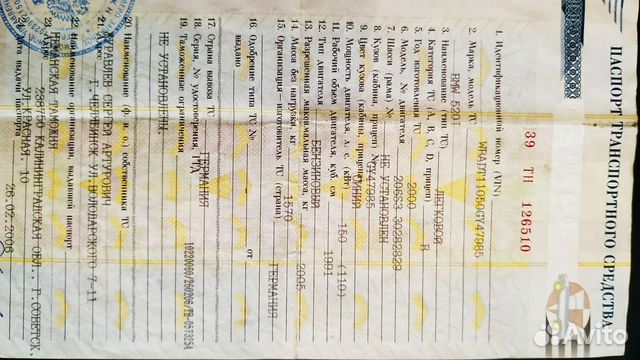 ПАСПОРТ ТРАНСПОРТНОГО СРЕДСТВА
39 ТН 126510
1. Идентификационный номер (VIN) WBADT11050GY47985
2. Марка, модель ТС БМВ 520I
3. Наименование (тип ТС) ЛЕГКОВОЙ
4. Категория ТС (А, В, С, D, прицеп) В
5. Год изготовления ТС 2000
6. Модель, № двигателя 206S3 30282829
7. Шасси (рама) № НЕ УСТАНОВЛЕН
8. Кузов (кабина, прицеп) № GY47985
9. Цвет кузова (кабины, прицепа) СИНИЙ
10. Мощность двигателя, л. с. (кВт) 150 (110)
11. Рабочий объем двигателя, куб. см 1991
12. Тип двигателя БЕНЗИНОВЫЙ
13. Разрешенная максимальная масса, кг 2005
14. Масса без нагрузки, кг 1570
15. Организация-изготовитель ТС (страна) ГЕРМАНИЯ
16. Одобрение типа ТС № от
выдано
17. Страна вывоза ТС ГЕРМАНИЯ
18. Серия, № удостоверения, ГТД 10220060/260206/ТВ-0573254
19. Таможенные ограничения
НЕ УСТАНОВЛЕНЫ
20. Наименование (ф. и. о.) собственника ТС
ЖУРАВЛЕВ СЕРГЕЙ АРТУРОВИЧ
21. Адрес Г.ЧЕЛЯБИНСК УЛ.ВОЛОДАРСКОГО 7-11
22. Наименование организации, выдавшей паспорт
НЕМАНСКАЯ ТАМОЖНЯ
23. Адрес 238750 КАЛИНИНГРАДСКАЯ ОБЛ., Г.СОВЕТСК,
УЛ.КРАСНАЯ, 10
24. Дата выдачи паспорта 26.02.2006
Avito